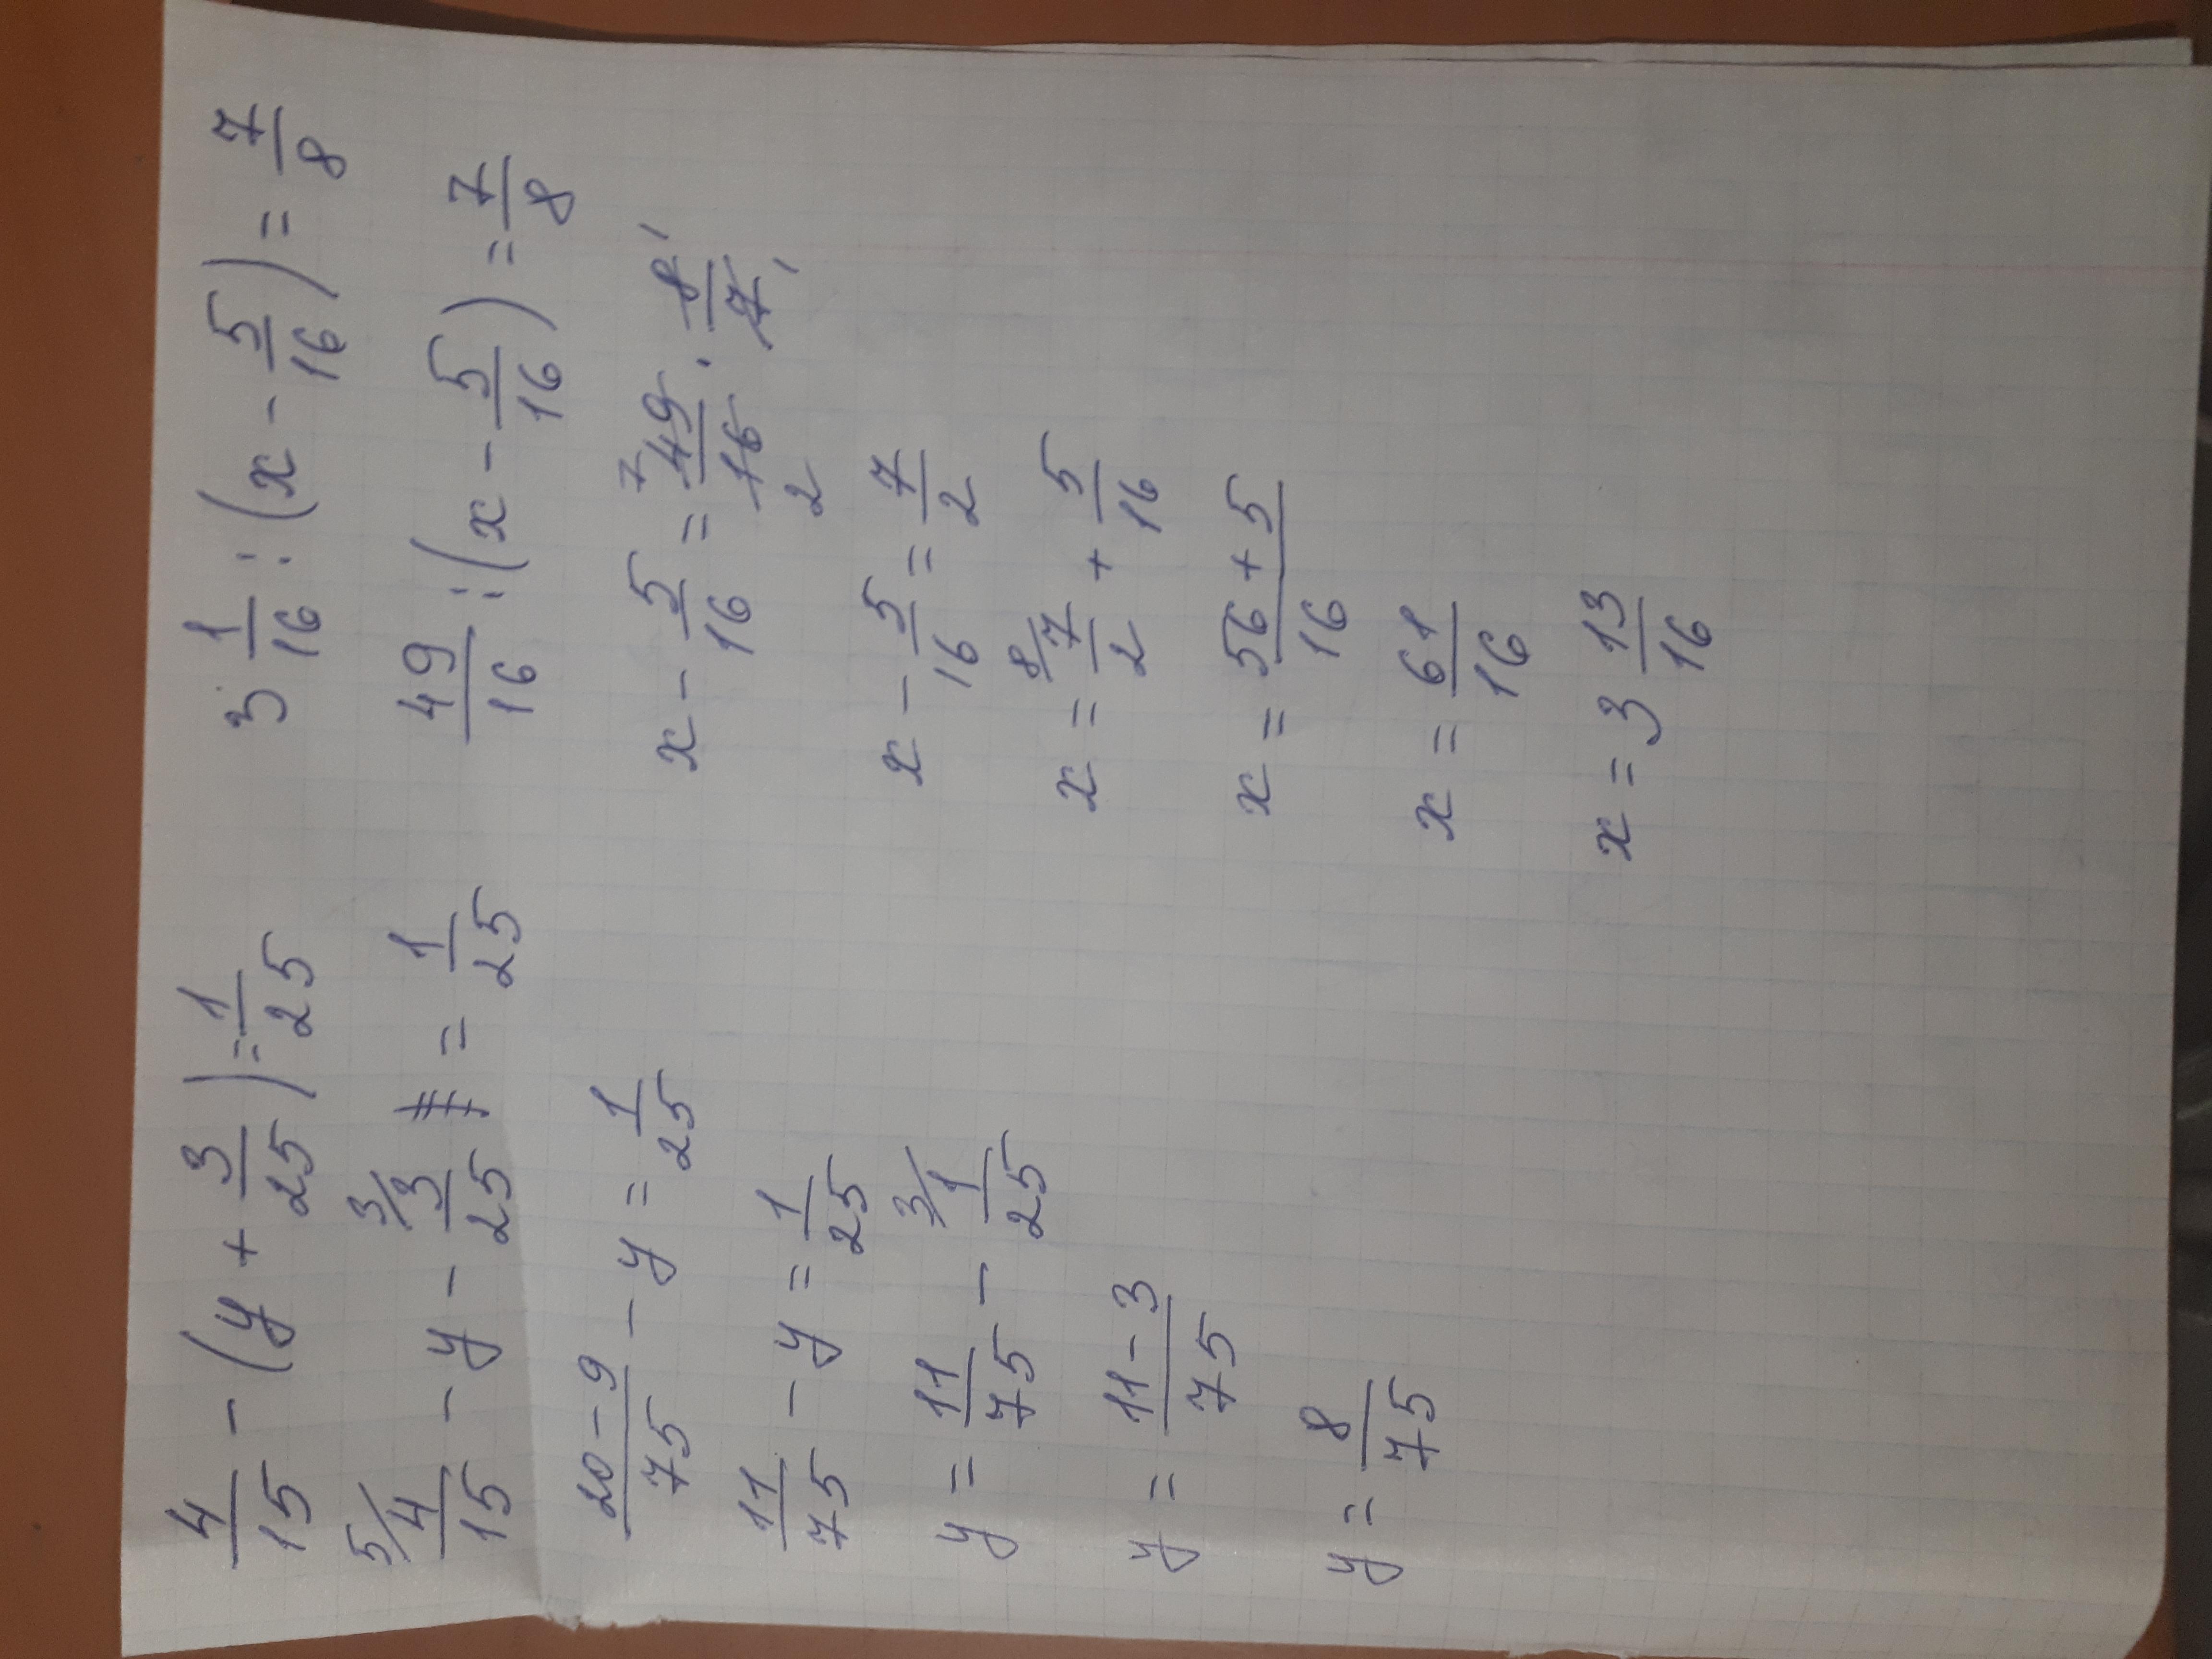 4/15 - (y + 3/25) = 1/25
5/ 4/15 - y - 3/ 3/25 = 1/25
20-9/75 - y = 1/25
11/75 - y = 1/25
y = 11/75 - 3/ 1/25
y = 11-3/75
y = 8/75
3 1/16 : (x - 5/16) = 7/8
49/16 : (x - 5/16) = 7/8
x - 5/16 = 7 49/16 2 · 8/7 1 1
x - 5/16 = 7/2
x = 8/ 7/2 + 5/16
x = 56+5/16
x = 61/16
x = 3 13/16